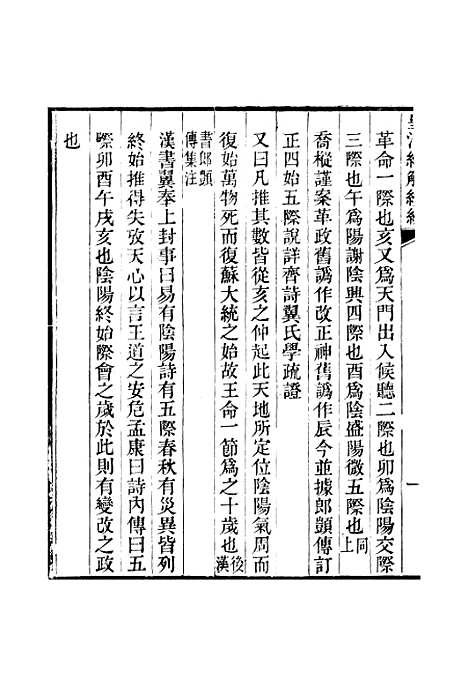 皇清經解續編
革命一際也亥又爲天門出入候聽二際也卯爲陰陽交際
三際也午爲陽謝陰興四際也酉爲陰盛陽微五際也同上
喬樅謹案革政舊譌作改正神舊譌作辰今並據郎顗傳訂
正四始五際說詳齊詩翼氏學疏證
又曰凡推其數皆從亥之仲起此天地所定位陰陽氣周而
復始萬物死而復蘇大統之始故王命一節爲之十歲也後漢
書郎顗
傳集注
漢書翼奉上封事曰易有陰陽詩有五際春秋有災異皆列
終始推得失攷天心以言王道之安危孟康曰詩內傳曰五
際卯酉午戌亥也陰陽終始際會之歲於此則有變改之政
也
一